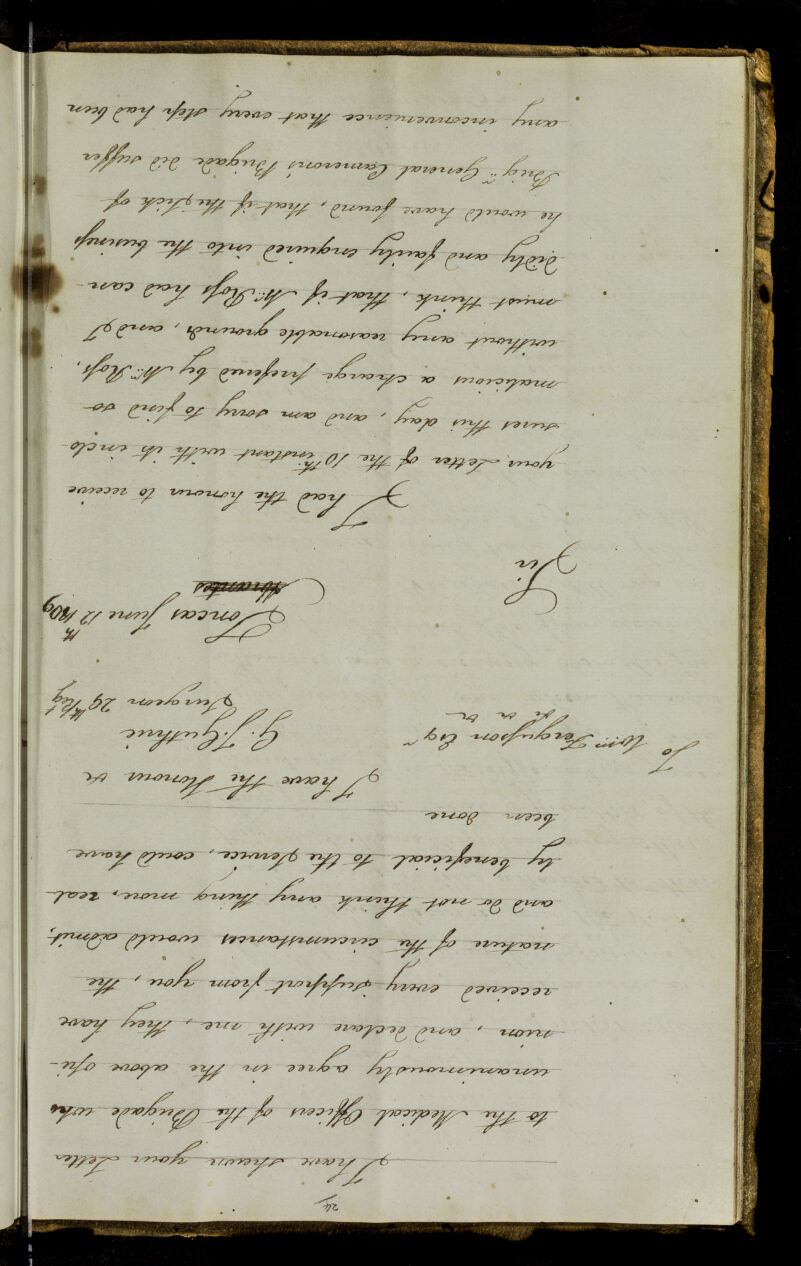 24
I have shewn your Letter
to the Medical Officers of the Brigade who
unanimously agree in the above opi-
nion, and declare with me, they have
received every support from you, the
nature of the circumstances would admit,
and do not think any thing more, real
ly beneficial to the Service, could have
been done
I have the Honour &c
G. J. Guthrie
Surgeon 29th Regt
To Wm Fergusson Esqr
&c &c &c
Toncas June 12th 1809
Abrantes
Sir
I had the honour to receive
your Letter of the 10th instant with its inclo
sures this day, and am sorry to find so
malicious a charge prefered by Mr. Rofs,
without any reasonable grounds, and I
must think, that if Mr. Rofs had can-
didly and fairly enquired into the businefs
he would have found, that if the Sick of
Brigr. General Cameron's Brigade did suffer
any inconvenience that every step had been